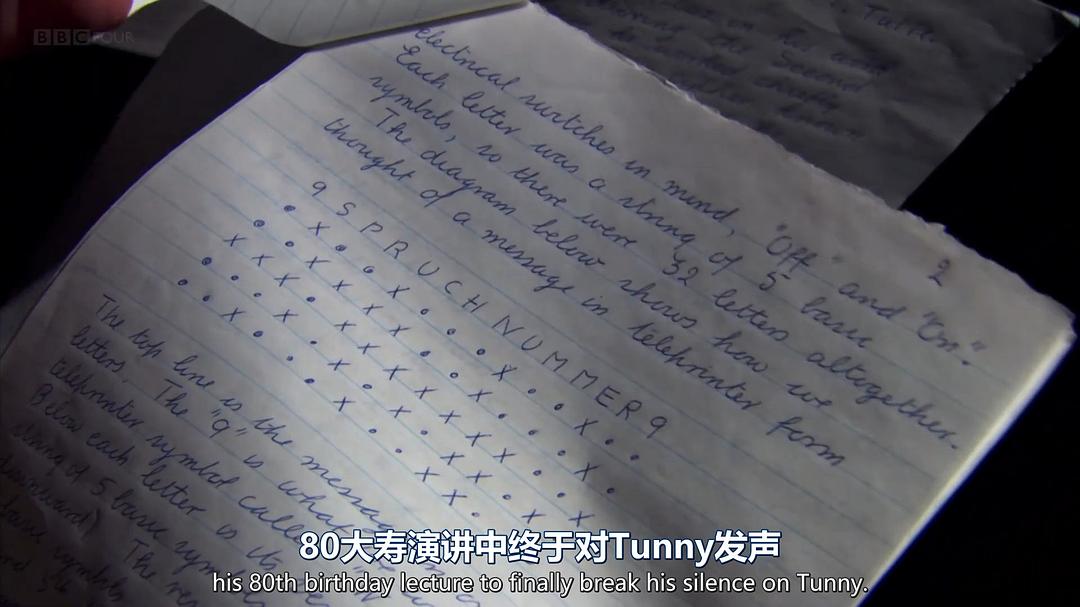 BBC FOUR
2
electrical switches in mind, "Off" and "On".
Each letter was a string of 5 basic
symbols, so there were 32 letters altogether.
The diagram below shows how we
thought of a message in teleprinter form
9 S P R U C H N U M M E R 9
• x • • x • • • x • • x • •
• • x x x x • • x • • • x •
x x x • x x x x x x x • • x
• • • x • x • x • x x • x
• • x • • • x • • x x •
The top line is the message
letters. The "9" is what
teleprinter symbol called
Below each letter is its
string of 5 basic symbols
downward). The res
80大寿演讲中终于对Tunny发声
his 80th birthday lecture to finally break his silence on Tunny.